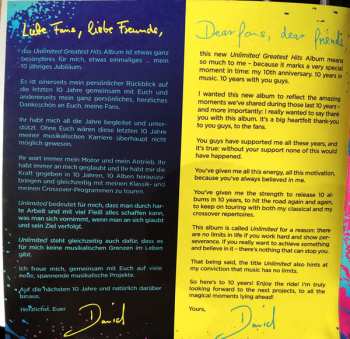 Liebe Fans, liebe Freunde,
das Unlimited Greatest Hits Album ist etwas ganz
besonderes für mich, etwas einmaliges ... mein
10 jähriges Jubiläum.
Es ist einerseits mein persönlicher Rückblick auf
die letzten 10 Jahre gemeinsam mit Euch und
andererseits mein ganz persönliches, herzliches
Dankeschön an Euch, meine Fans.
Ihr habt mich all die Jahre begleitet und unter-
stützt. Ohne Euch wären diese letzten 10 Jahre
meiner musikalischen Karriere überhaupt nicht
möglich gewesen.
Ihr wart immer mein Motor und mein Antrieb, Ihr
habt immer an mich geglaubt und Ihr habt mir die
Kraft gegeben in 10 Jahren, 10 Alben herauszu-
bringen und gleichzeitig mit meinen Klassik- und
meinen Crossover-Programmen zu touren.
Unlimited bedeutet für mich, dass man durch har-
te Arbeit und mit viel Fleiß alles schaffen kann,
was man sich vornimmt, wenn man an sich glaubt
und sein Ziel verfolgt.
Unlimited steht gleichzeitig auch dafür, dass es
für mich keine musikalischen Grenzen im Leben
gibt.
Ich freue mich, gemeinsam mit Euch auf viele
neue, spannende musikalische Projekte.
Auf die nächsten 10 Jahre und natürlich darüber
hinaus.
Herzlichst, Euer
David
Dear fans, dear friends
this new Unlimited Greatest Hits Album means
so much to me - because it marks a very special
moment in time: my 10th anniversary. 10 years in
music. 10 years with you guys.
I wanted this new album to reflect the amazing
moments we've shared during those last 10 years -
and more importantly: I really wanted to say thank
you with this album. It's a big heartfelt thank-you
to you guys, to the fans.
You guys have supported me all these years, and
it's true without your support none of this would
have happened.
You've given me all this energy, all this motivation,
because you've always believed in me.
You've given me the strength to release 10 al-
bums in 10 years, to hit the road again and again,
to keep on touring with both my classical and my
crossover repertoires.
This album is called Unlimited for a reason: there
are no limits in life if you work hard and show per-
severance. If you really want to achieve something
and believe in it - there's nothing that can stop you.
That being said, the title Unlimited also hints at
my conviction that music has no limits.
So here's to 10 years! Enjoy the ride! I'm truly
looking forward to the next projects, to all the
magical moments lying ahead!
Yours,
David